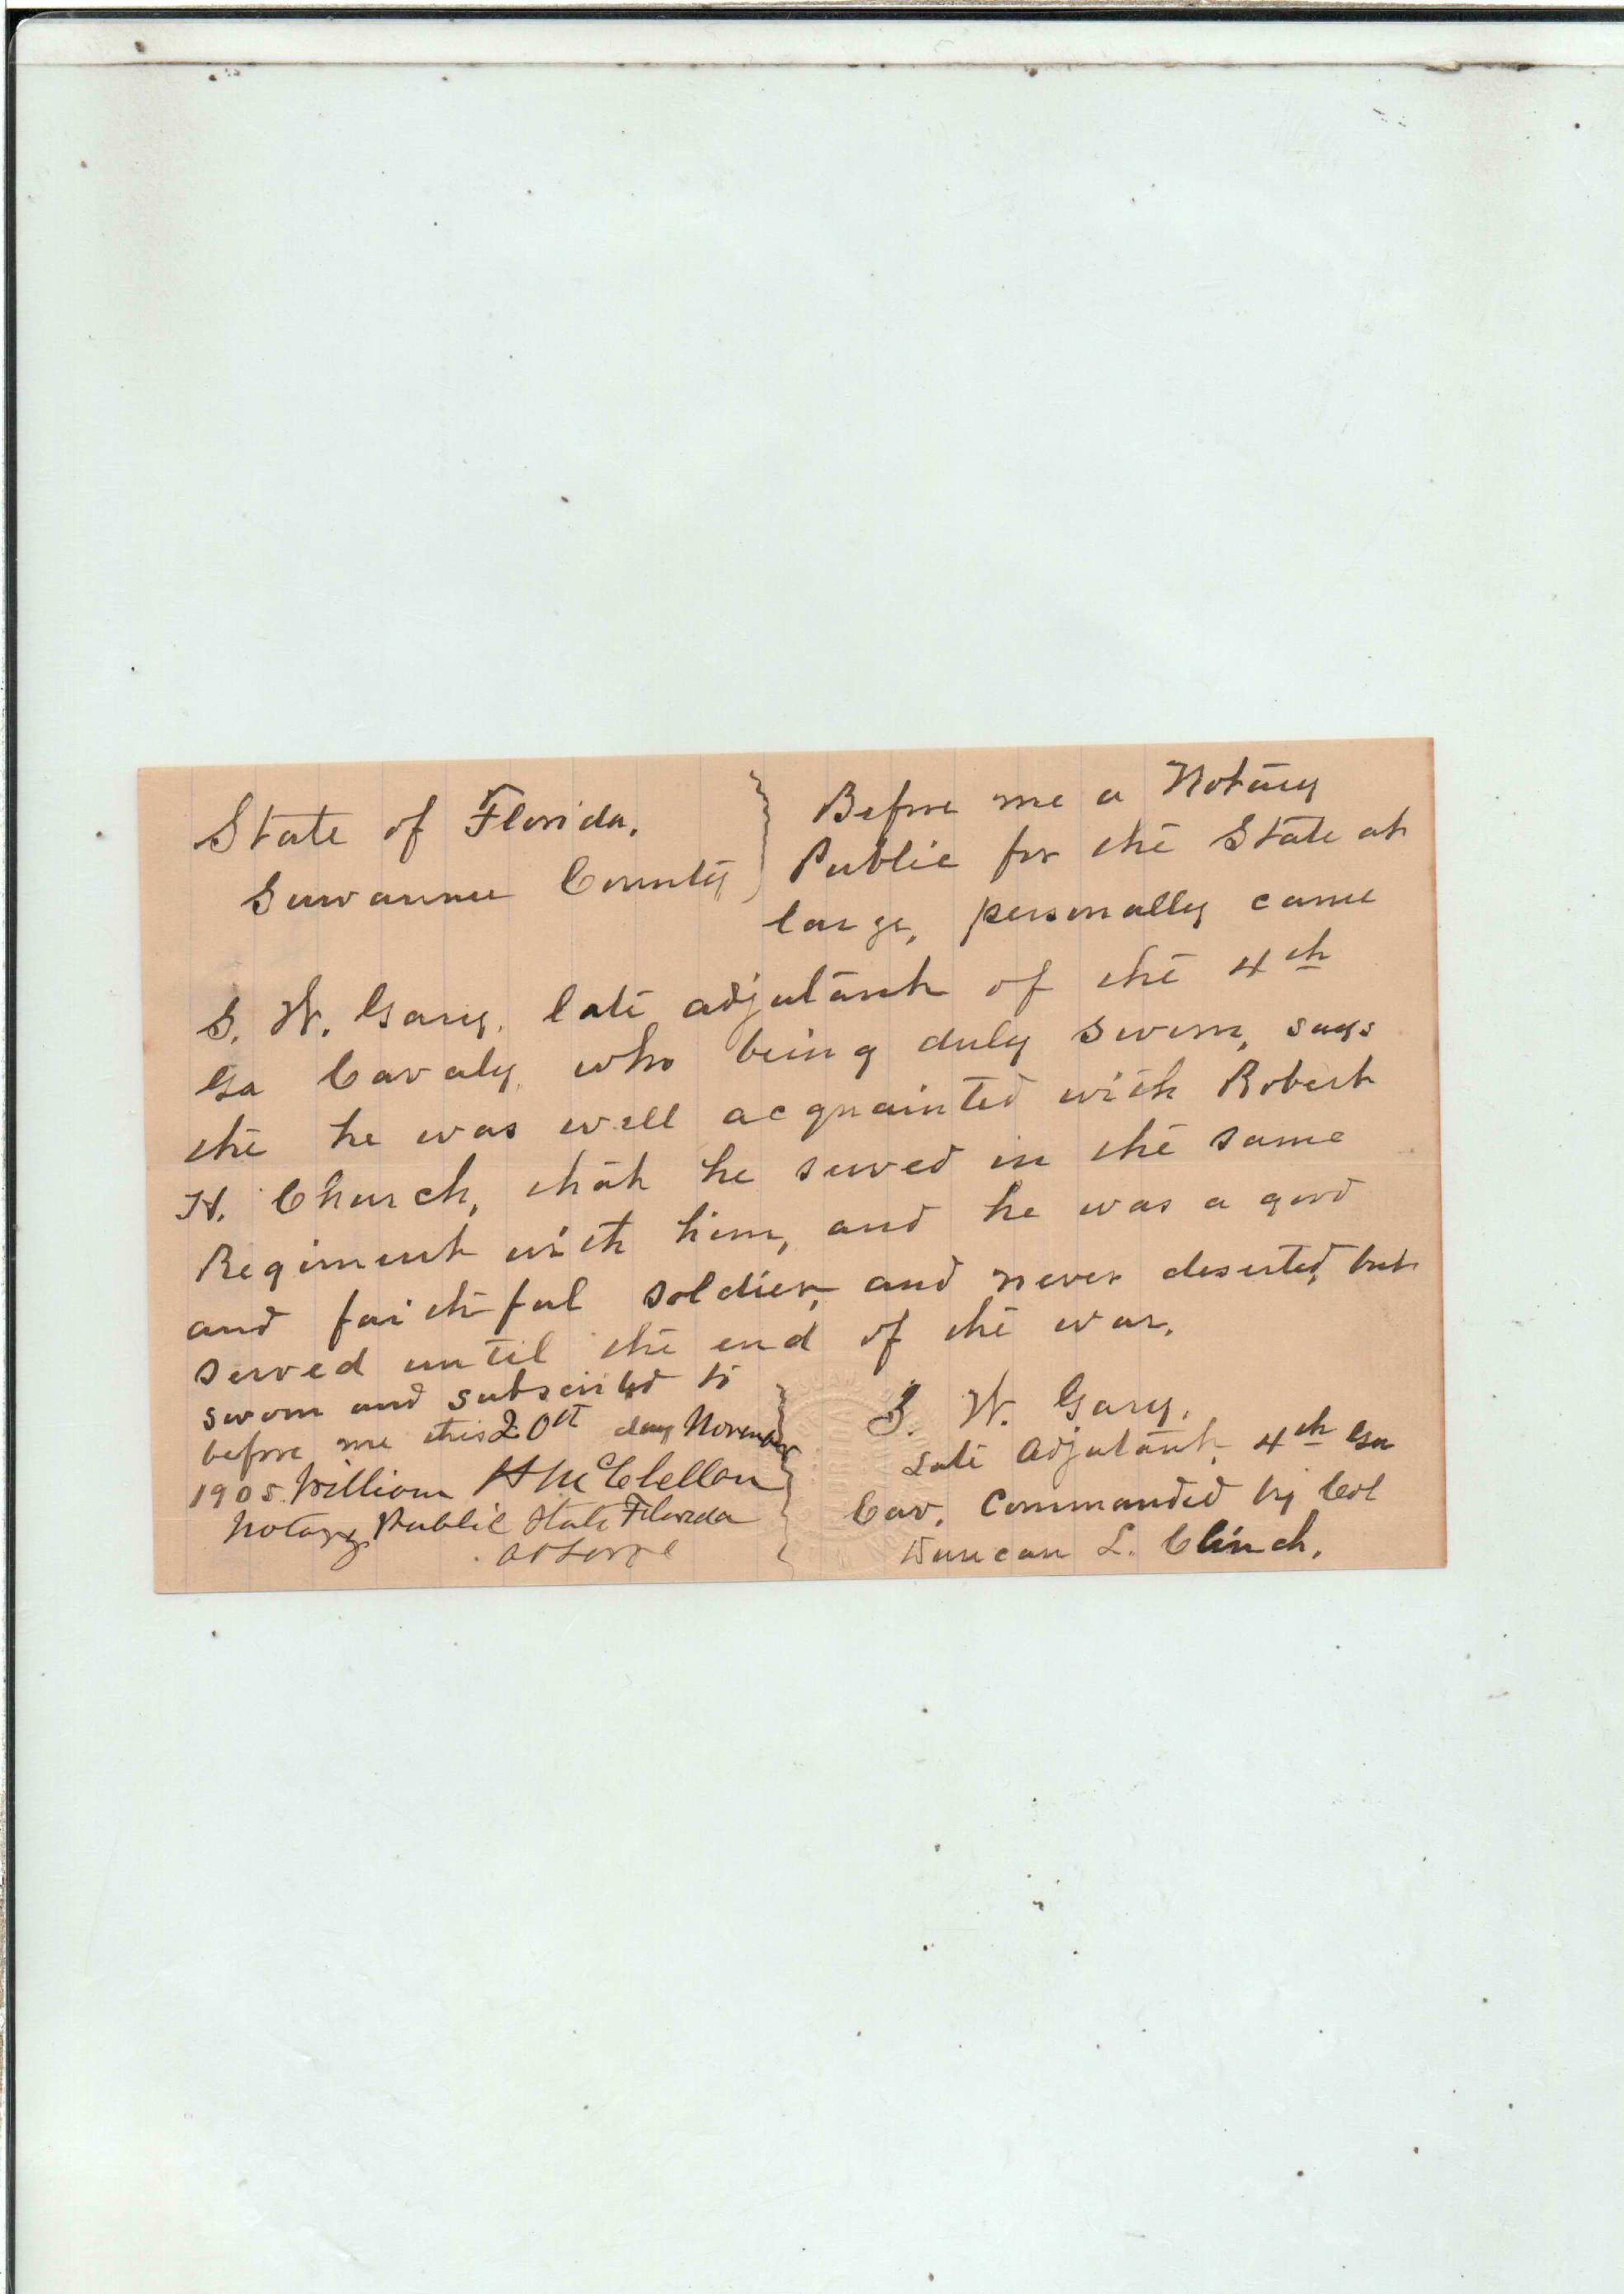 State of Florida.
Suwannee County
Before me a Notary
Public for the State at
large, personally came
S. W. Gary, late adjutant of the 4th
Ga Cavaly, who being duly sworn, says
the he was well acquainted with Robert
H. Church, that he served in the same
Regiment with him, and he was a good
and faithful soldier, and never deserted, but
served until the end of the war.
sworn and subscribed to
before me this 20th day November
1905. William H McClellan
Notary Public State Florida
at large
S. W. Gary,
Late Adjutant, 4th Ga
Cav. Commanded by Col
Duncan L. Clinch.